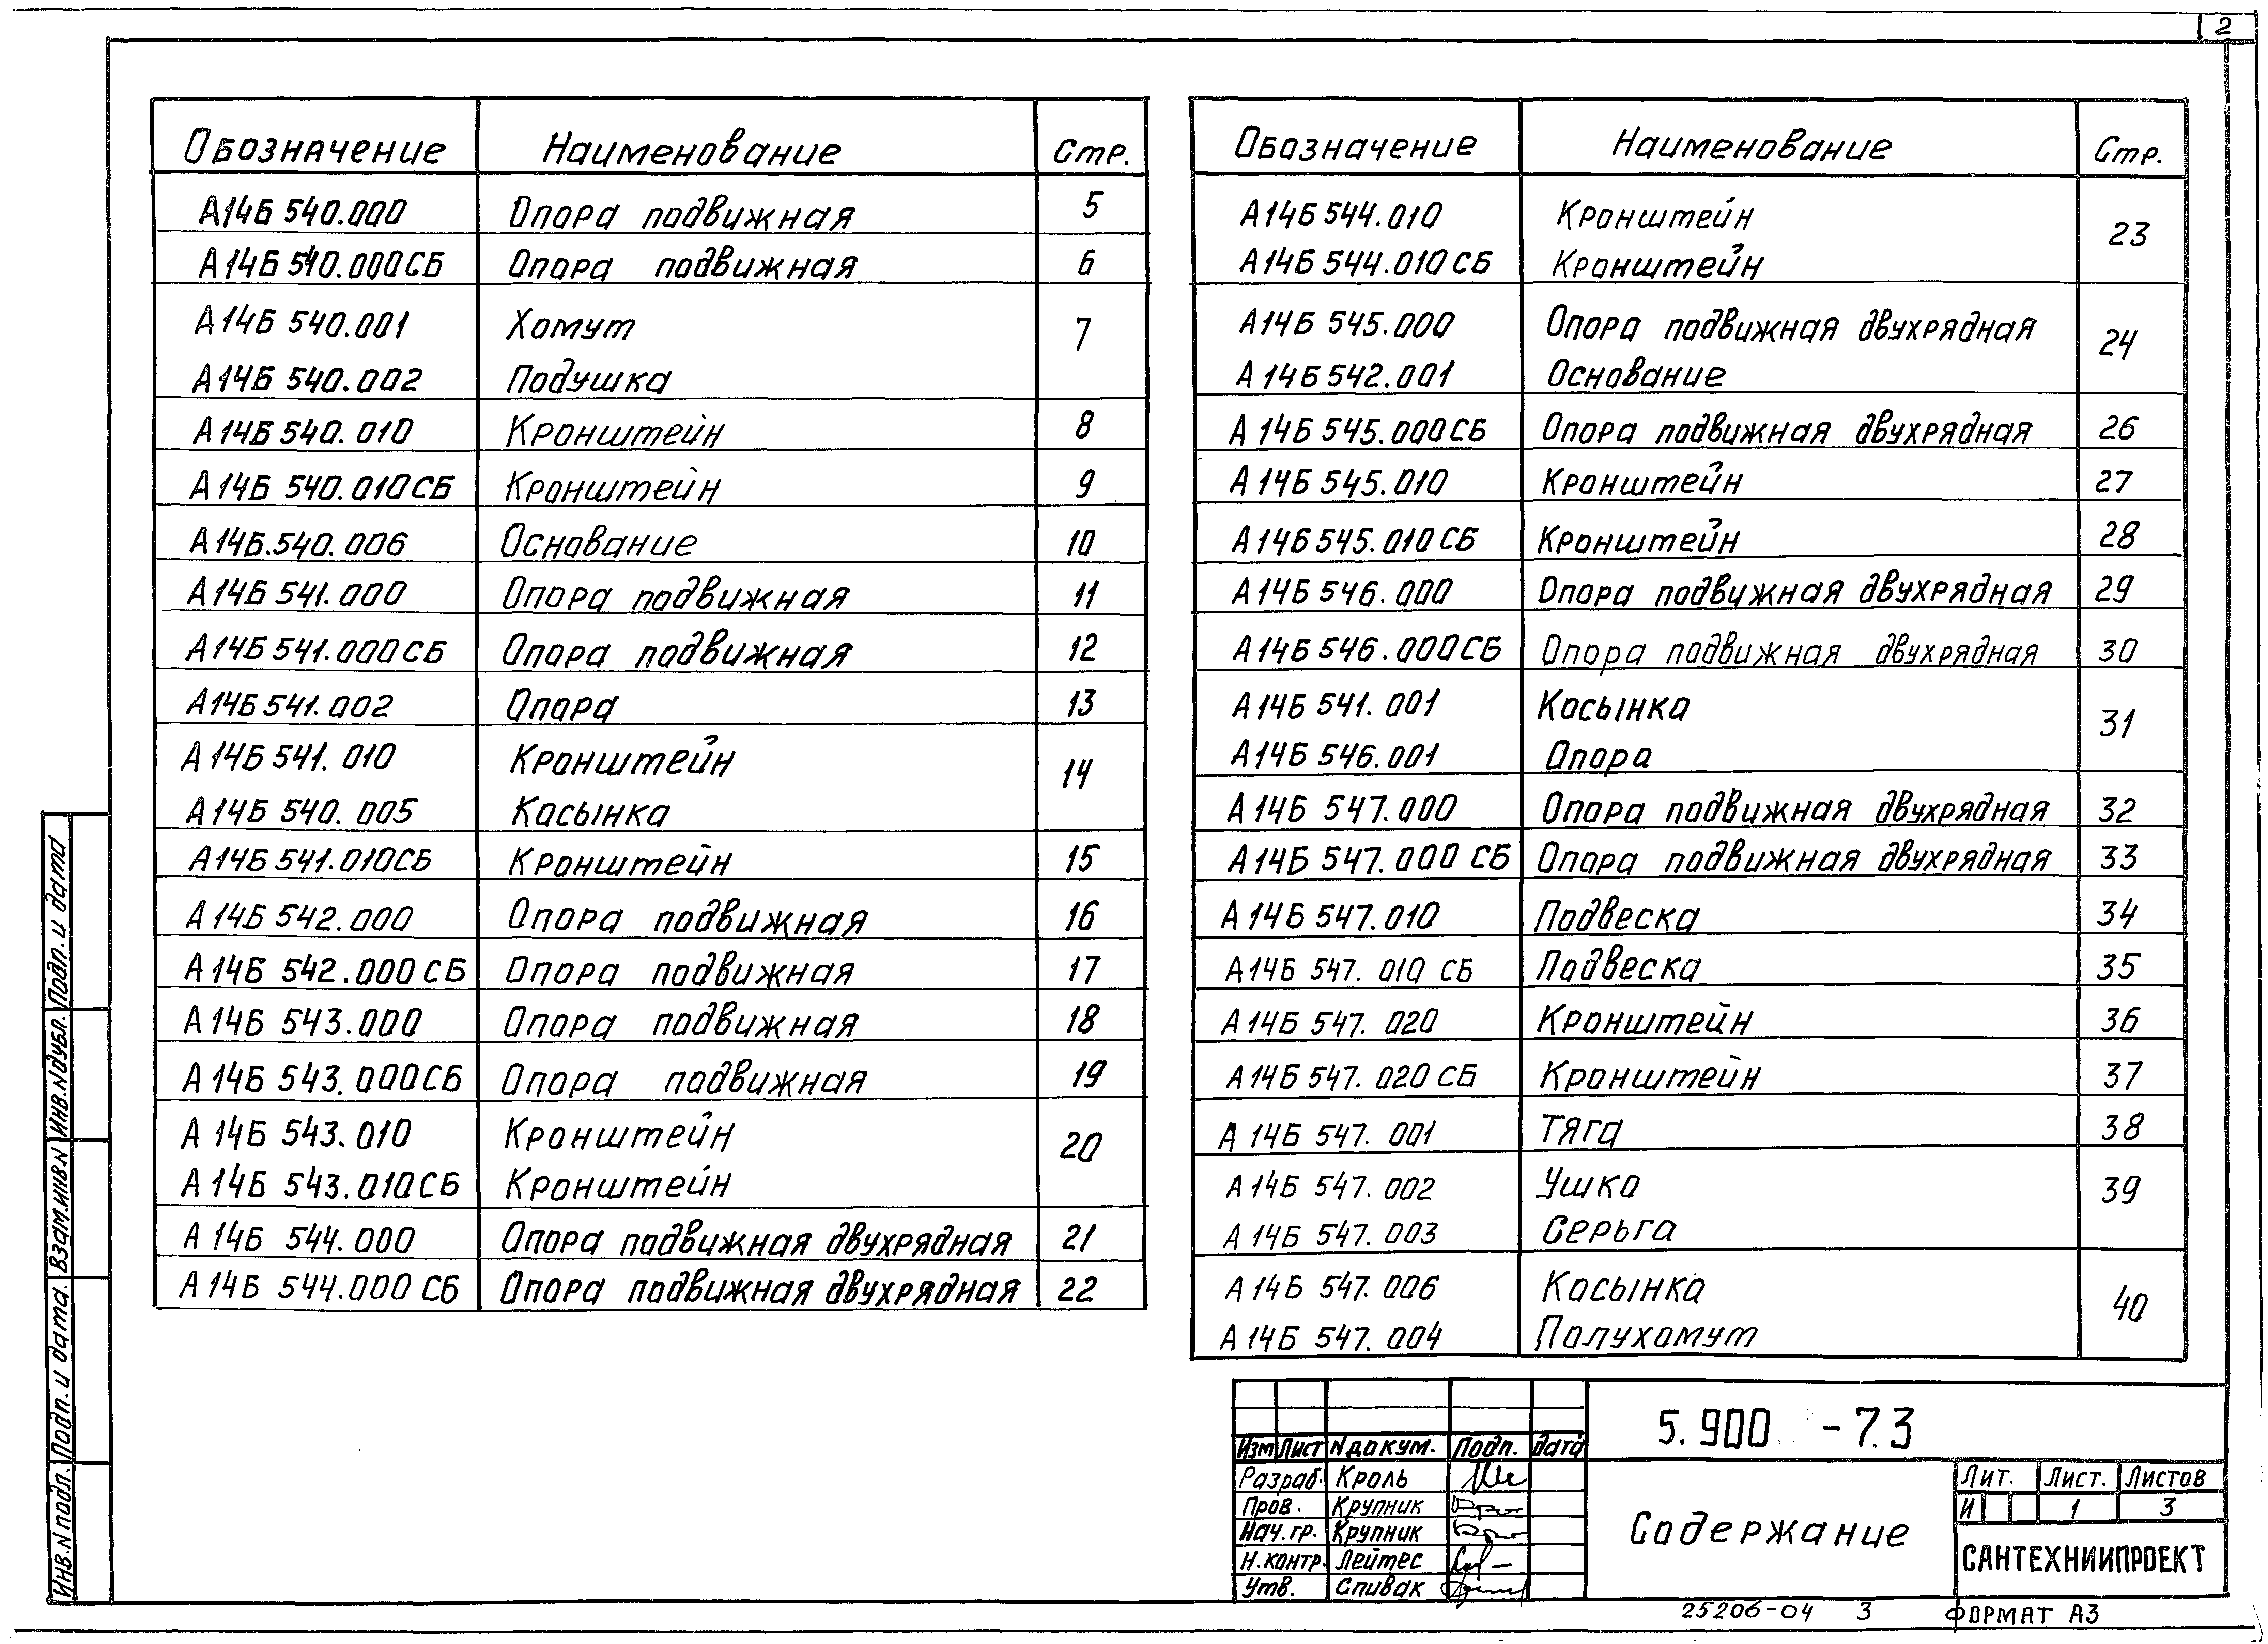 2
Обозначение Наименование Стр.
А14Б 540.000 Опора подвижная 5
А14Б 540.000СБ Опора подвижная 6
А14Б 540.001 Хомут 7
А14Б 540.002 Подушка
А14Б 540.010 Кронштейн 8
А14Б 540.010СБ Кронштейн 9
А14Б.540.006 Основание 10
А14Б 541.000 Опора подвижная 11
А14Б 541.000СБ Опора подвижная 12
А14Б 541.002 Опора 13
А14Б 541.010 Кронштейн 14
А14Б 540.005 Косынка
А14Б 541.010СБ Кронштейн 15
А14Б 542.000 Опора подвижная 16
А14Б 542.000СБ Опора подвижная 17
А14Б 543.000 Опора подвижная 18
А14Б 543.000СБ Опора подвижная 19
А14Б 543.010 Кронштейн 20
А14Б 543.010СБ Кронштейн
А14Б 544.000 Опора подвижная двухрядная 21
А14Б 544.000СБ Опора подвижная двухрядная 22
Обозначение Наименование Стр.
А14Б 544.010 Кронштейн 23
А14Б 544.010СБ Кронштейн
А14Б 545.000 Опора подвижная двухрядная 24
А14Б 542.001 Основание
А14Б 545.000СБ Опора подвижная двухрядная 26
А14Б 545.010 Кронштейн 27
А14Б 545.010СБ Кронштейн 28
А14Б 546.000 Опора подвижная двухрядная 29
А14Б 546.000СБ Опора подвижная двухрядная 30
А14Б 541.001 Косынка 31
А14Б 546.001 Опора
А14Б 547.000 Опора подвижная двухрядная 32
А14Б 547.000 СБ Опора подвижная двухрядная 33
А14Б 547.010 Подвеска 34
А14Б 547.010 СБ Подвеска 35
А14Б 547.020 Кронштейн 36
А14Б 547.020 СБ Кронштейн 37
А14Б 547.001 Тяга 38
А14Б 547.002 Ушко 39
А14Б 547.003 Серьга
А14Б 547.006 Косынка 40
А14Б 547.004 Полухомут
Изм Лист N докум. Подп. дата
Разраб. Кроль
Пров. Крупник
Нач.гр. Крупник
Н.контр. Лейтес
Утв. Спивак
5.900 -7.3
Содержание
Лит. Лист. Листов
И 1 3
САНТЕХНИИПРОЕКТ
25206-04 3 ФОРМАТ А3
Инв.N подл. Подп. и дата. Взам.инв.N Инв.N дубл. Подп. и дата